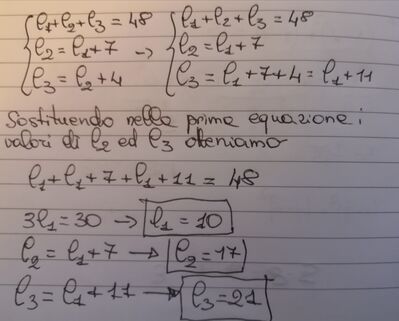 ℓ1+ℓ2+ℓ3=48 ℓ1+ℓ2+ℓ3=48
ℓ2=ℓ1+7 → ℓ2=ℓ1+7
ℓ3=ℓ2+4 ℓ3=ℓ1+7+4=ℓ1+11
Sostituendo nella prima equazione i
valori di ℓ2 ed ℓ3 otteniamo
ℓ1+ℓ1+7+ℓ1+11=48
3ℓ1=30 → ℓ1=10
ℓ2=ℓ1+7 → ℓ2=17
ℓ3=ℓ1+11 → ℓ3=21